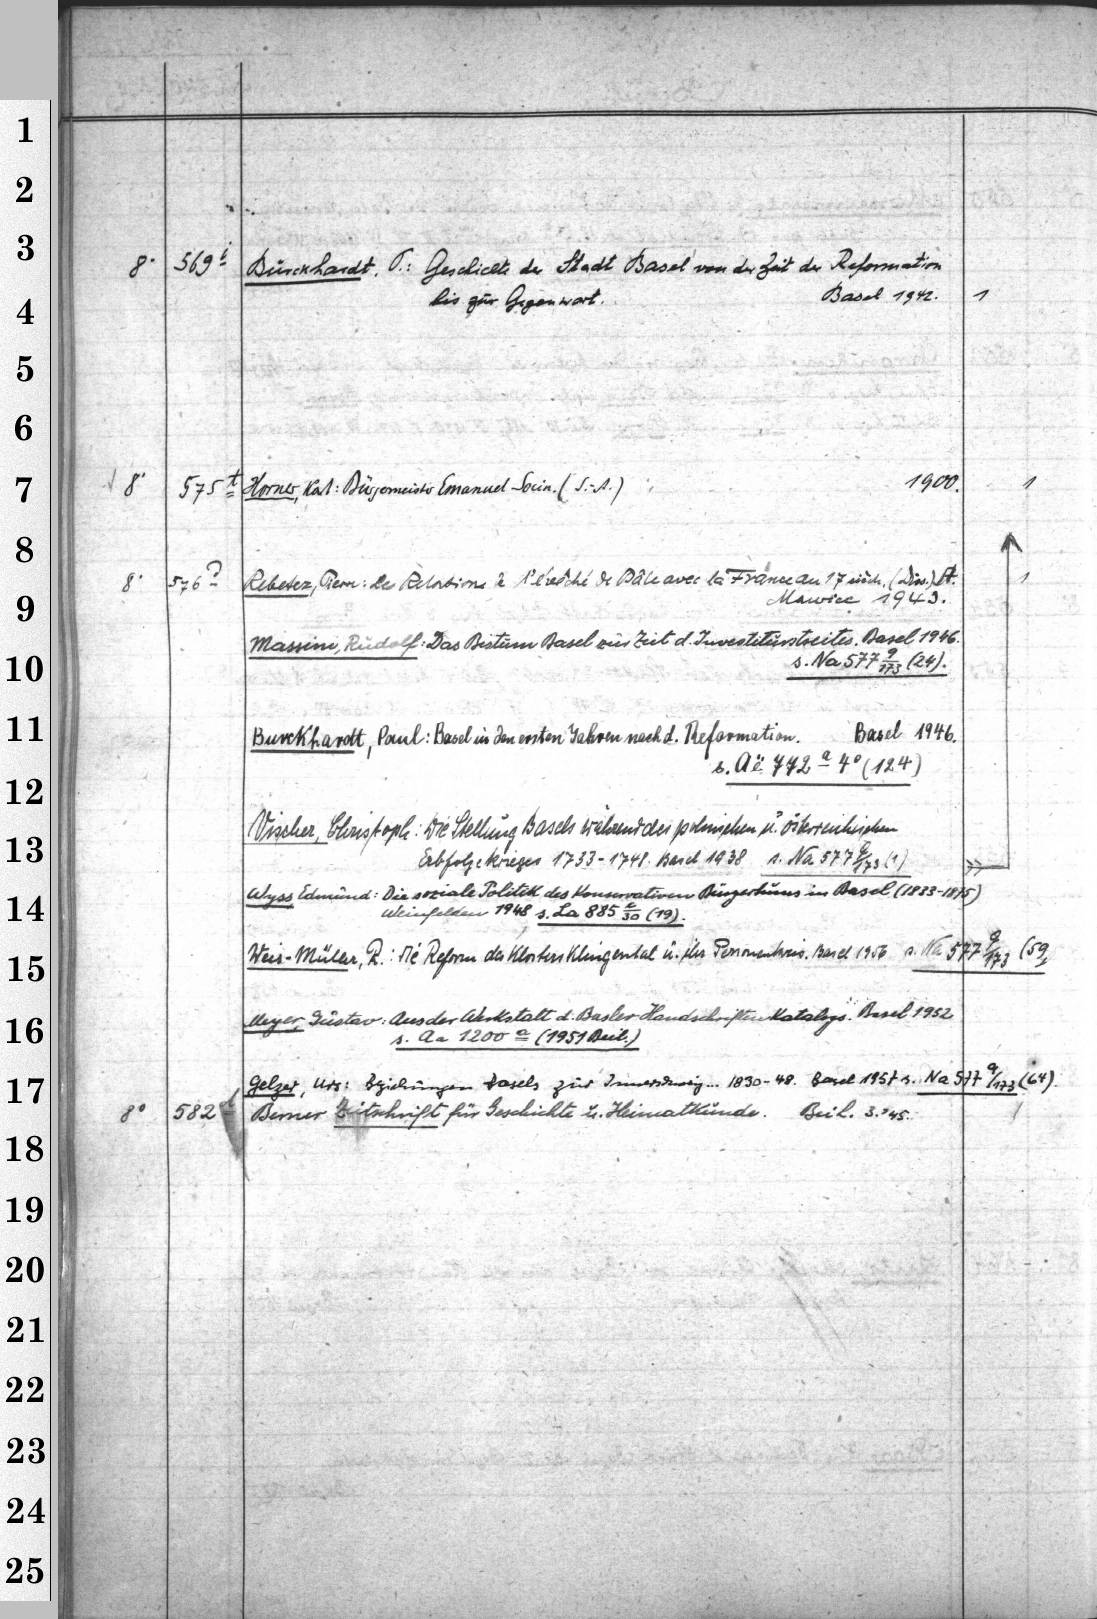 1
2
3
8° 569 i Burckhardt, P.: Geschichte der Stadt Basel von der Zeit der Reformation
bis zur Gegenwart. Basel 1942. 1
4
5
6
7
8° 575 t Horner, Karl: Bürgermeister Emanuel Socin. (S.-A.) 1900. 1
8
8° 576 Rebetez, Pierre: Les Relations de l'évêché de Bâle avec la France au 17 siècle. (Diss.) St. 1
9
Maurice 1943.
Massini, Rudolf: Das Bistum Basel zur Zeit d. Investiturstreites. Basel 1946.
10
s. Na 577 q/173 (24).
11
Burckhardt, Paul: Basel in den ersten Jahren nach d. Reformation. Basel 1946.
s. Aë 772 a 4° (124)
12
Vischer, Christoph: Die Stellung Basels während des polnischen u. österreichischen
13
Erbfolgekrieges 1733-1748. Basel 1938 s. Na 577 q/173 (1)
Wyss Edmund: Die soziale Politik des Konservativen Bürgertums in Basel (1833-1875)
14
Weinfelden 1948 s. La 885 /30 (19).
15
Weis-Müller, R.: Die Reform des Klosters Klingental u. ihr Personenkreis. Basel 1956 s. Na 577 q/173 (59)
Meyer, Gustav: Aus der Werkstatt d. Basler Handschriften Katalogs. Basel 1952
16
s. Aa 1200 a (1951 Beil.)
17
Gelzer, Urs: Beziehungen Basels zur Innerschweiz... 1830-48. Basel 1957 s. Na 577 q/173 (64).
8° 582 Berner Zeitschrift für Geschichte u. Heimatkunde. Beil. 3.°45.
18
19
20
21
22
23
24
25